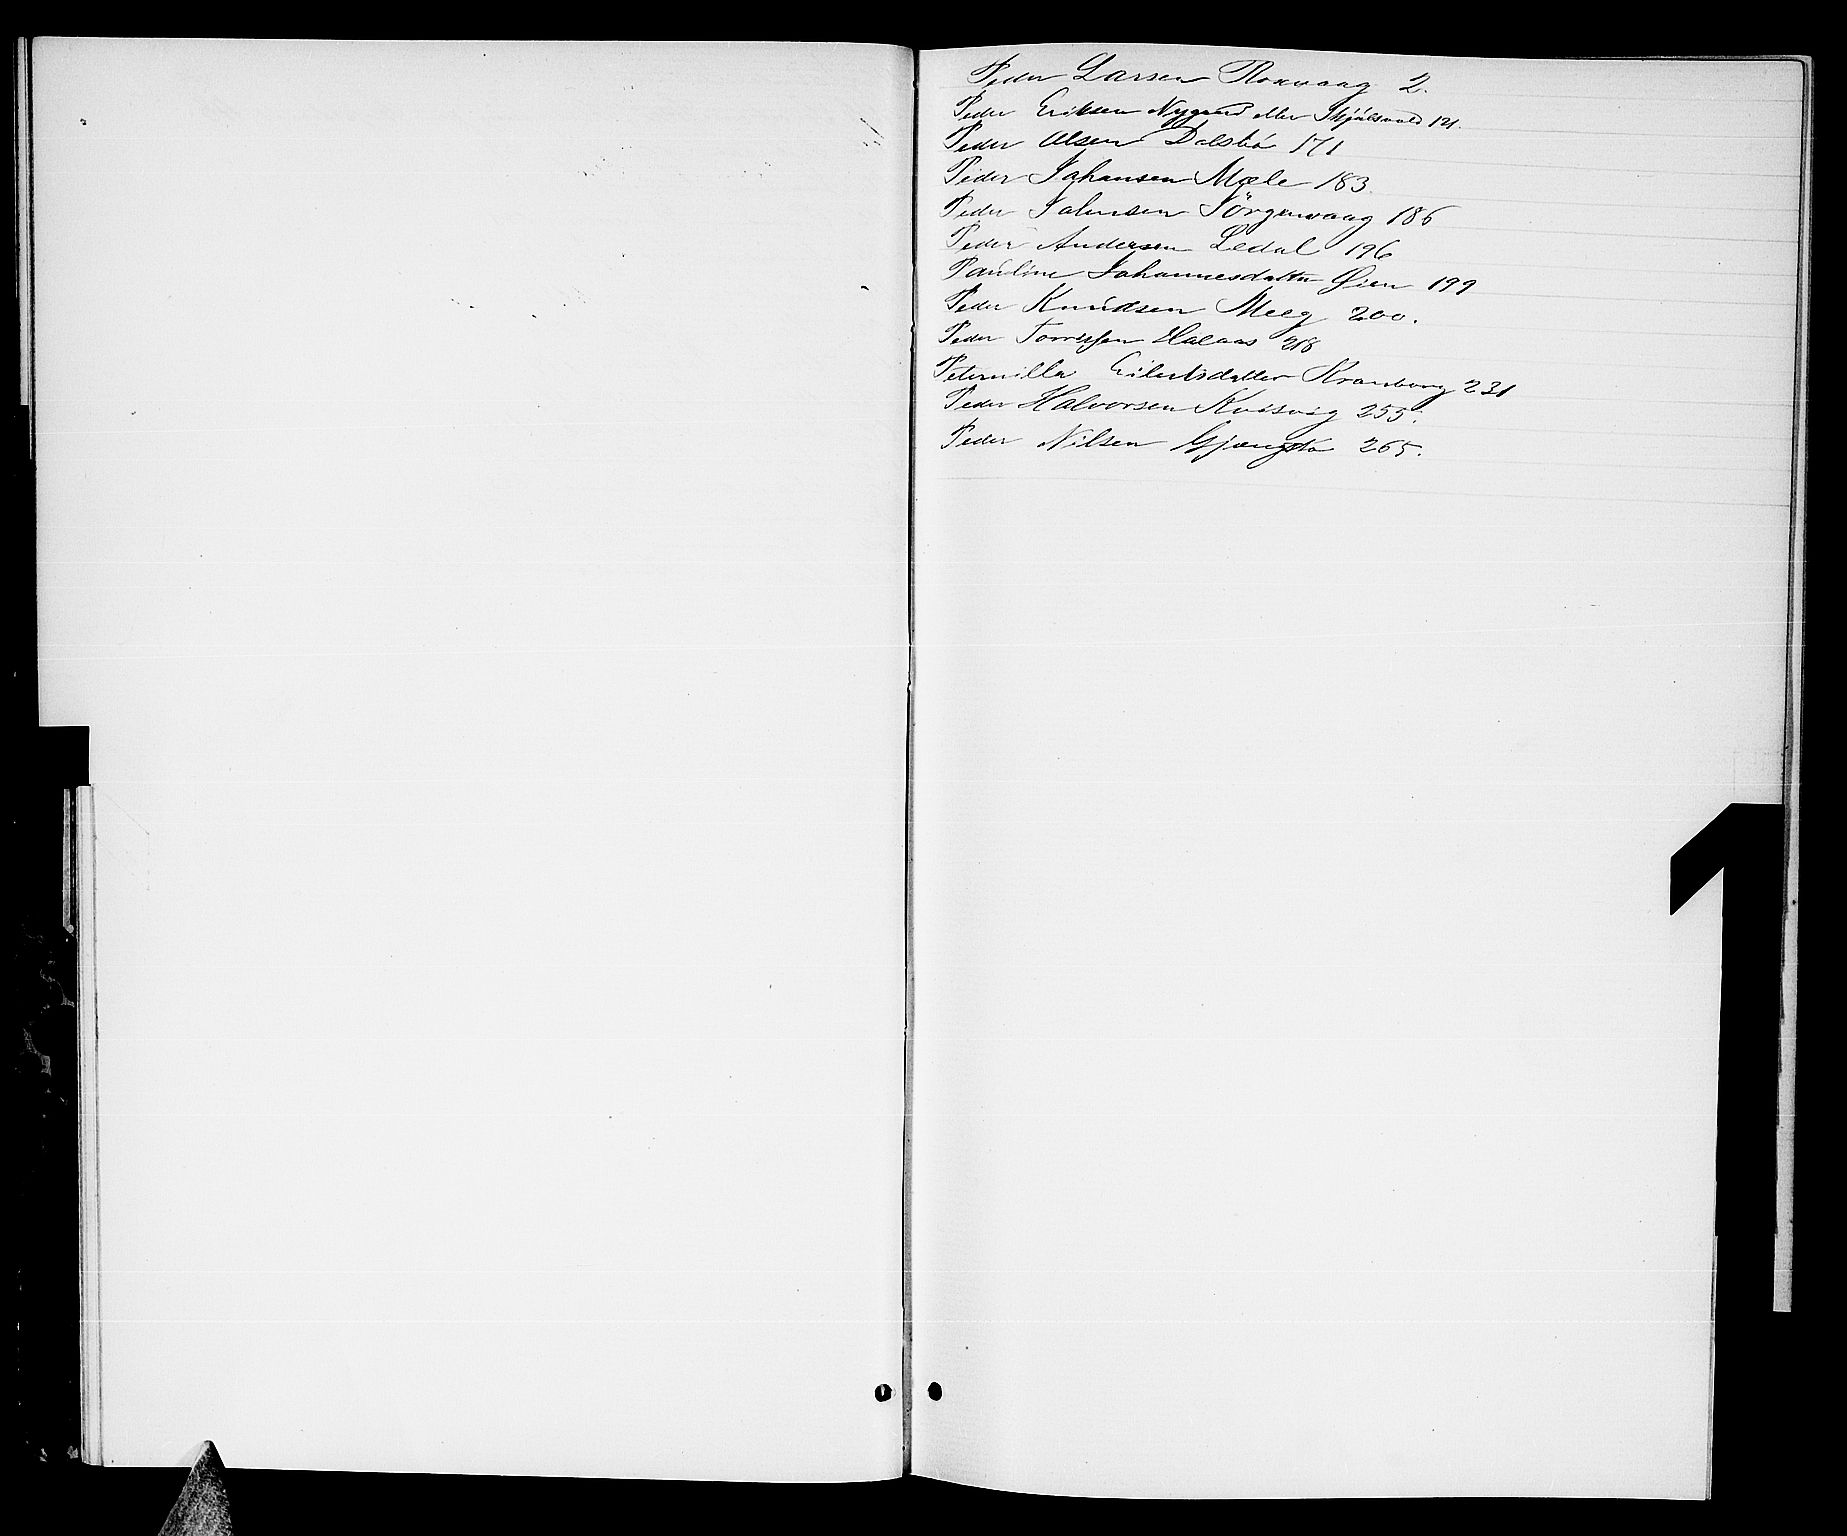 Peder Larsen Roxvaag 2.
Peder Eriksen Nygaard eller Skjölsvold 121.
Peder Olsen Dalsbö 171
Peder Johansen Mæle 183
Peder Johnsen Jörgenvaag 186
Peder Andersen Ledal 196
Pauline Johannesdatter Øien 199
Peder Knudsen Meeg 200.
Peder Torrissen Halaas 218
Peternille Eilertsdatter Kranborg 231
Peder Halvorsen Kvisvig 255.
Peder Nilsen 265.